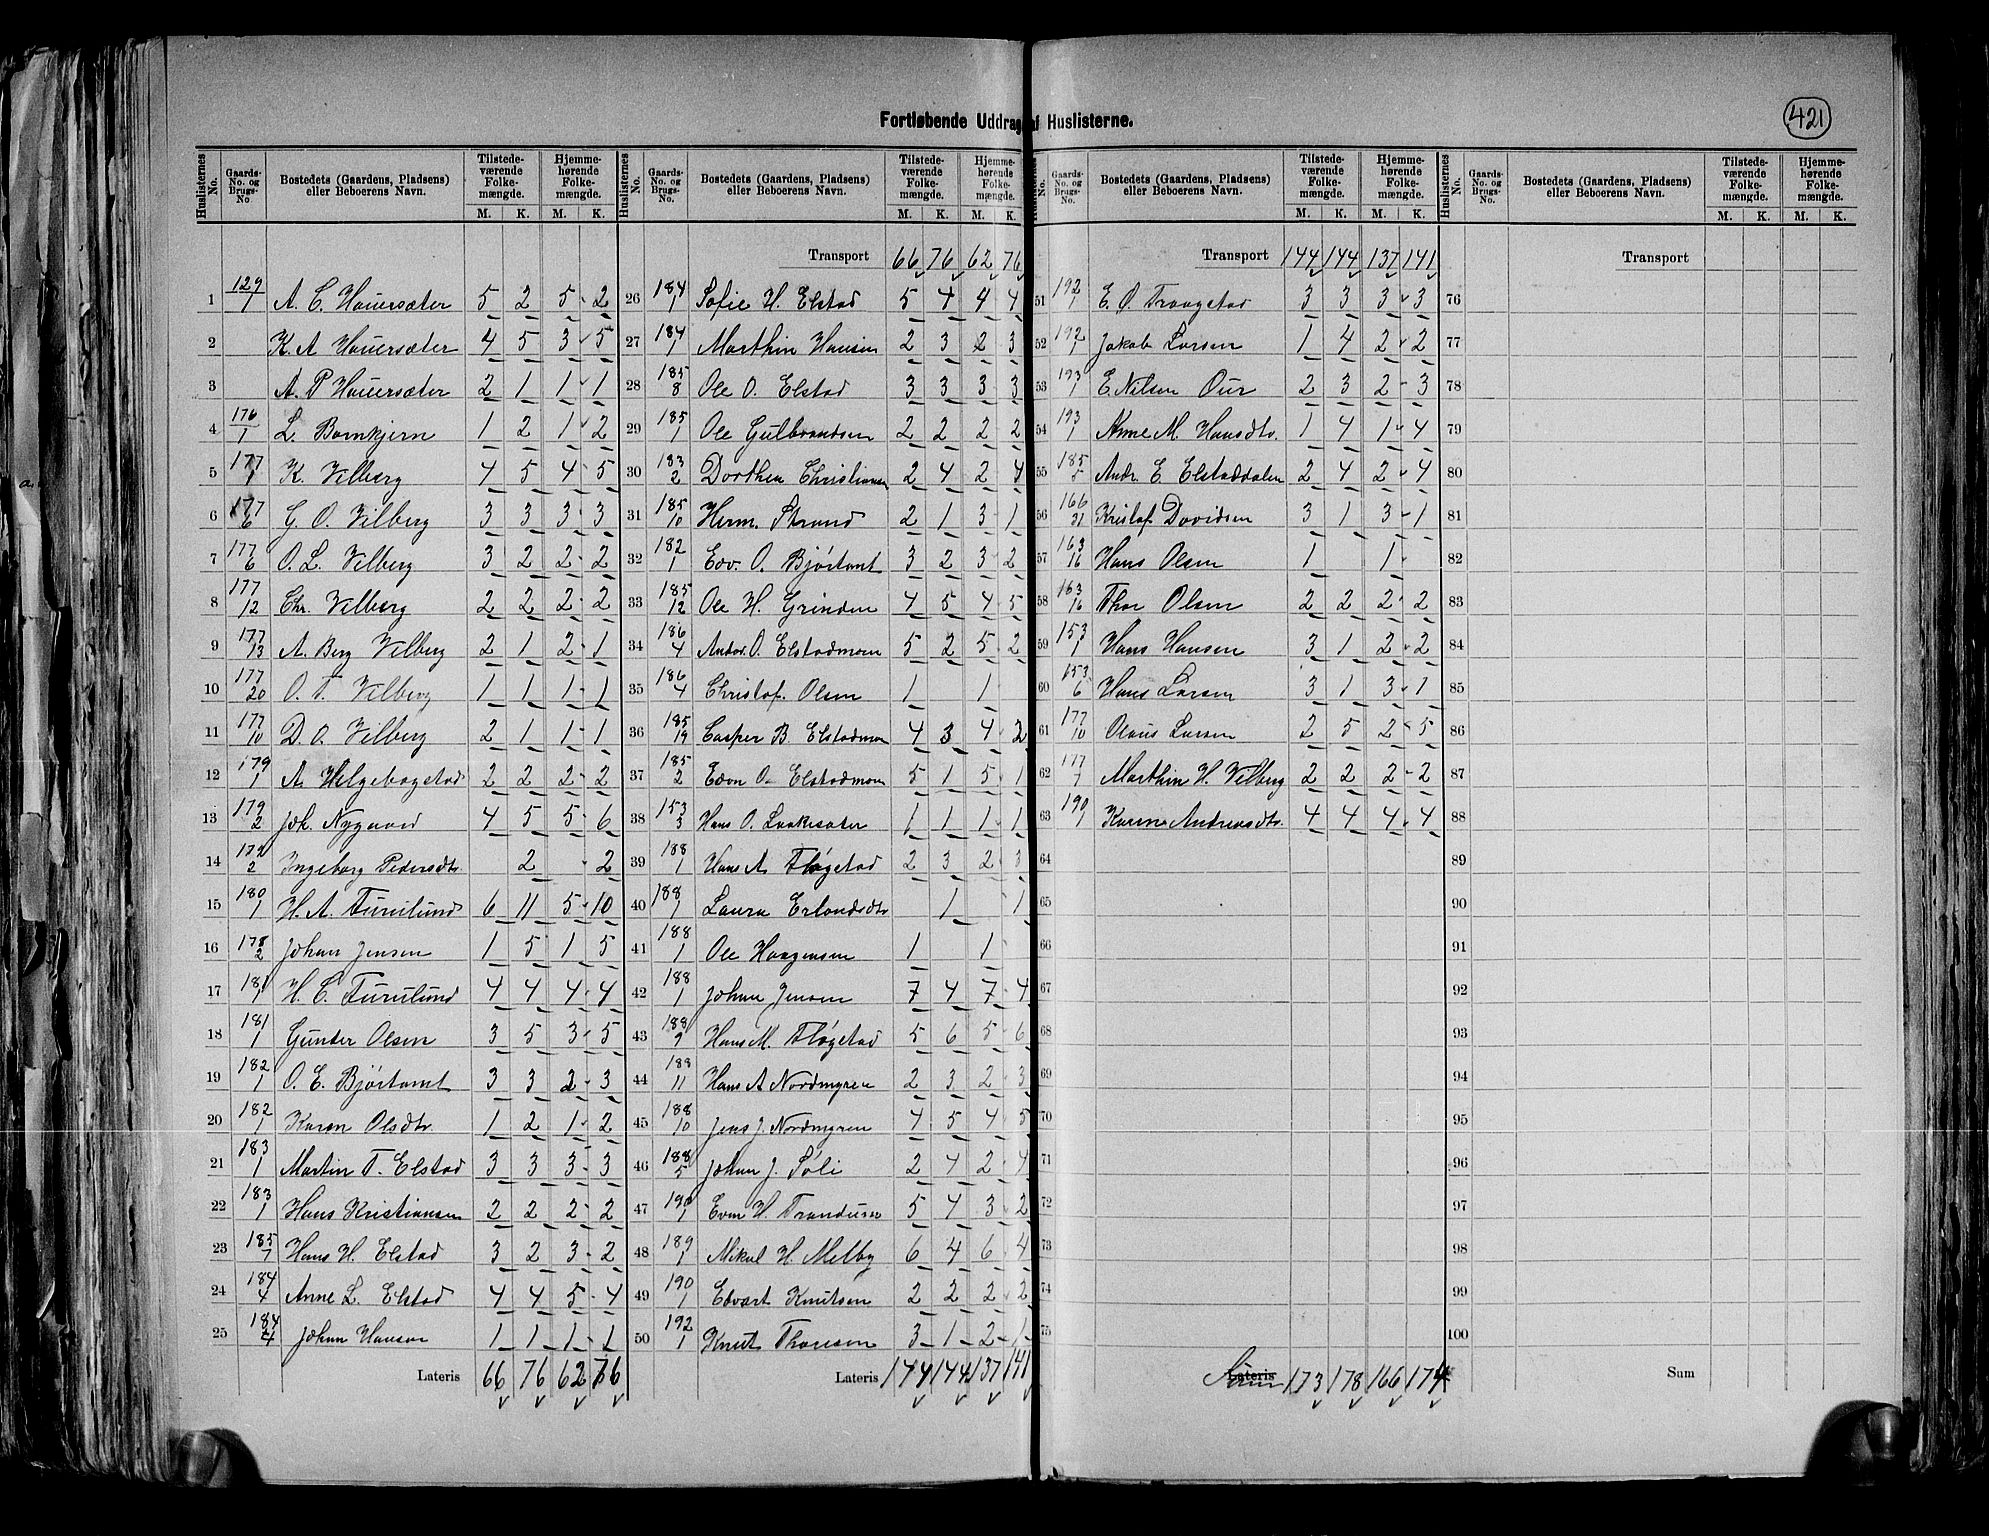 421
Fortløbende Uddrag af Huslisterne.
Huslisternes No. Gaards-No. og Brugs-No. Bostedets (Gaardens, Pladsens) eller Beboerens Navn. Tilstedeværende Folkemængde. M. K. Hjemmehørende Folkemængde. M. K.
1 129/1 A. C. Hauersæter 5 2 5 - 2
2 K. A Hauersæter 4 5 3 - 5
3 A. P Hauersæter 2 1 1 - 1
4 176/1 L. Bornkjern 1 2 1 - 2
5 177/1 K. Vilberg 4 5 4 - 5
6 177/6 G. O. Vilberg 3 3 3 - 3
7 177/6 O. L. Vilberg 3 2 2 - 2
8 177/12 Chr. Vilberg 2 2 2 - 2
9 177/13 A. Berg Vilberg 2 1 2 - 1
10 177/20 O. T. Vilberg 1 1 1 - 1
11 177/10 D. O. Vilberg 2 1 1 - 1
12 179/1 A. Helgebogstad 2 2 2 - 2
13 179/2 Joh. Nygaard 4 5 5 - 6
14 179/2 Ingeborg Pedersdtr. 2 - 2
15 180/1 H. A. Furulund 6 11 5 - 10
16 178/2 Johan Jensen 1 5 1 5
17 181/1 H. C. Furulund 4 4 4 - 4
18 181/1 Gunder Olsen 3 5 3 - 5
19 182/1 O. E. Bjørtomt 3 3 2 - 3
20 182/1 Karen Olsdtr. 1 2 1 - 2
21 183/1 Martin T. Elstad 3 3 3 - 3
22 183/1 Hans Kristiansen 2 2 2 - 2
23 185/7 Hans H. Elstad 3 2 3 - 2
24 184/4 Anne L. Elstad 4 4 5 - 4
25 184/4 Johan Hansen 1 1 1 - 1
Lateris 66 76 62 76
Huslisternes No. Gaards-No. og Brugs-No. Bostedets (Gaardens, Pladsens) eller Beboerens Navn. Tilstedeværende Folkemængde. M. K. Hjemmehørende Folkemængde. M. K.
Transport 66 76 62 76
26 184/1 Sofie H. Elstad 5 4 4 - 4
27 184/1 Marthin Hansen 2 3 2 3
28 185/8 Ole O. Elstad 3 3 3 3
29 185/1 Ole Gulbrandsen 2 2 2 - 2
30 183/2 Dorthea Christiansen 2 4 2 4
31 185/10 Herm. Strand 2 1 3 1
32 182/1 Edv. O. Bjørtomt 3 2 3 - 2
33 185/12 Ole H. Grinden 4 5 4 - 5
34 186/4 Andr. O. Elstadmoen 5 2 5 2
35 186/4 Christof. Olsen 1 1
36 185/19 Casper B. Elstadmoen 4 3 4 2
37 185/2 Even O. Elstadmoen 5 1 5 1
38 153/3 Hans O. Laakesæter 1 1 1 1
39 188/1 Hans A. Fløgstad 2 3 2 3
40 188/1 Laura Erlandsdtr 1 1
41 188/1 Ole Haagensen 1 1
42 188/1 Johan Jensen 7 4 7 - 4
43 188/9 Hans M. Fløgstad 5 6 5 6
44 188/11 Hans A Nordmyren 2 3 2 - 3
45 188/10 Jens J. Nordmyren 4 5 4 5
46 188/5 Johan J. Søli 2 4 2 - 4
47 190/1 Even H. Trandum 5 4 3 - 2
48 189/1 Mikal H. Melby 6 4 6 - 4
49 190/1 Edvart Knutsen 2 2 2 - 2
50 192/1 Knut Thoresen 3 1 2 - 1
Lateris 144 144 137 141
No. Gaards-No. og Brugs-No. Bostedets (Gaardens, Pladsens) eller Beboerens Navn. Tilstedeværende Folkemængde. M. K. Hjemmehørende Folkemængde. M. K.
Transport 144 144 137 141
51 192/1 E. O. Traagstad 3 3 3 - 3
52 192/1 Jakob Larsen 1 4 2 - 2
53 193/1 E. Nilsen Our 2 3 2 - 3
54 193/1 Anne M. Hansdtr. 1 4 1 - 4
55 185/5 Andr. E Elstaddalen 2 4 2 - 4
56 166/21 Kristof. Davidsen 3 1 3 - 1
57 163/16 Hans Olsen 1 1 -
58 163/16 Thor Olsen 2 2 2 - 2
59 153/1 Hans Hansen 3 1 2 - 2
60 153/6 Hans Larsen 3 1 3 - 1
61 177/10 Olaus Larsen 2 5 2 - 5
62 177/7 Marthin H. Vilberg 2 2 2 - 2
63 190/1 Karine Andreasdtr. 4 4 4 - 4
64
65
66
67
68
69
70
71
72
73
74
75
Lateris Sum 173 178 166 174
Huslisternes No. Gaards-No. og Brugs-No. Bostedets (Gaardens, Pladsens) eller Beboerens Navn. Tilstedeværende Folkemængde. M. K. Hjemmehørende Folkemængde. M. K.
Transport
76
77
78
79
80
81
82
83
84
85
86
87
88
89
90
91
92
93
94
95
96
97
98
99
100
Sum